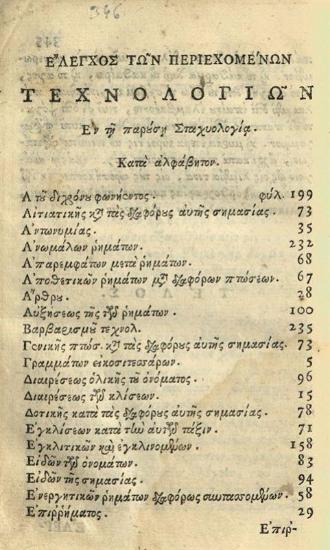 346
ΕʼΛΕΓΧΟΣ ΤΩ͂Ν ΠΕΡΙΕΧΟΜΕʹΝΩΝ
ΤΕΧΝΟΛΟΓΙΩ͂Ν
Εν τῇ παρούσῃ Σταχυολογίᾳ.
Κατὰ αλφάβητον.
Α τοῦ διχρόνου φωνήεντος. φύλ. 199
Αἰτιατικῆς κỳ τὰς διαφόρους αὐτῆς σημασίας. 73
Αʼντωνυμίας. 35
Αʼνωμάλων ῥημάτων. 232
Αʼπαρεμφάτων μετὰ ῥημάτων. 68
Αʼποθετικῶν ῥημάτων μετὰ διαφόρων πτώσεων. 67
Αʼʹρθρου. 28
Αυʼξήσεως τῆς τῶν ῥημάτων. 100
Βαρβαρισμοῦ τεχνολ. 235
Γενικῆς πτώσ. κỳ τὰς διαφόρους αὐτῆς σημασίας. 73
Γραμμάτων εἰκοσιτεσσάρων. 5
Διαιρέσεως ὁλικῆς τοῦ ὀνόματος. 96
Διαιρέσεως τῶν κλίσεων. 15
Δοτικῆς κατὰ τὰς διαφόρους αὐτῆς σημασίας. 78
Εʼγκλίσεων κατὰ τὴν αὐτῶν τάξιν. 71
Εʼγκλιτικῶν καὶ ἐγκλινομένων. 158
Ειʼδῶν τῶν ὀνομάτων. 83
Ειʼδῶν τῆς σημασίας. 94
Εʼνεργητικῶν ῥημάτων διαφόρως συντασσομένων. 58
Εʼπιῤῥήματος. 29
Εʼπιρ-